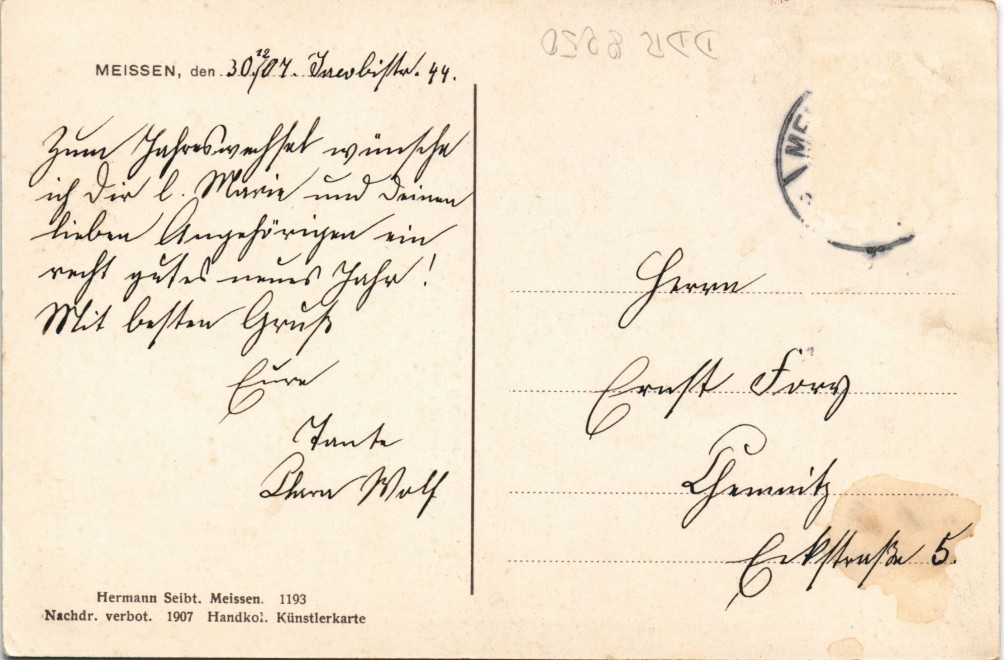 MEISSEN, den 30/12 07. Jacobistr. 44.
Zum Jahreswechsel wünsche
ich Dir l. Marie und Deinen
lieben Angehörigen ein
recht gutes neues Jahr!
Mit besten Gruß
Eure
Tante
Clara Wolf
Hermann Seibt. Meissen. 1193
Nachdr. verbot. 1907 Handkol. Künstlerkarte
DDR 8820
ME
Herrn
Ernst
Chemnitz
Eckstraße 5.